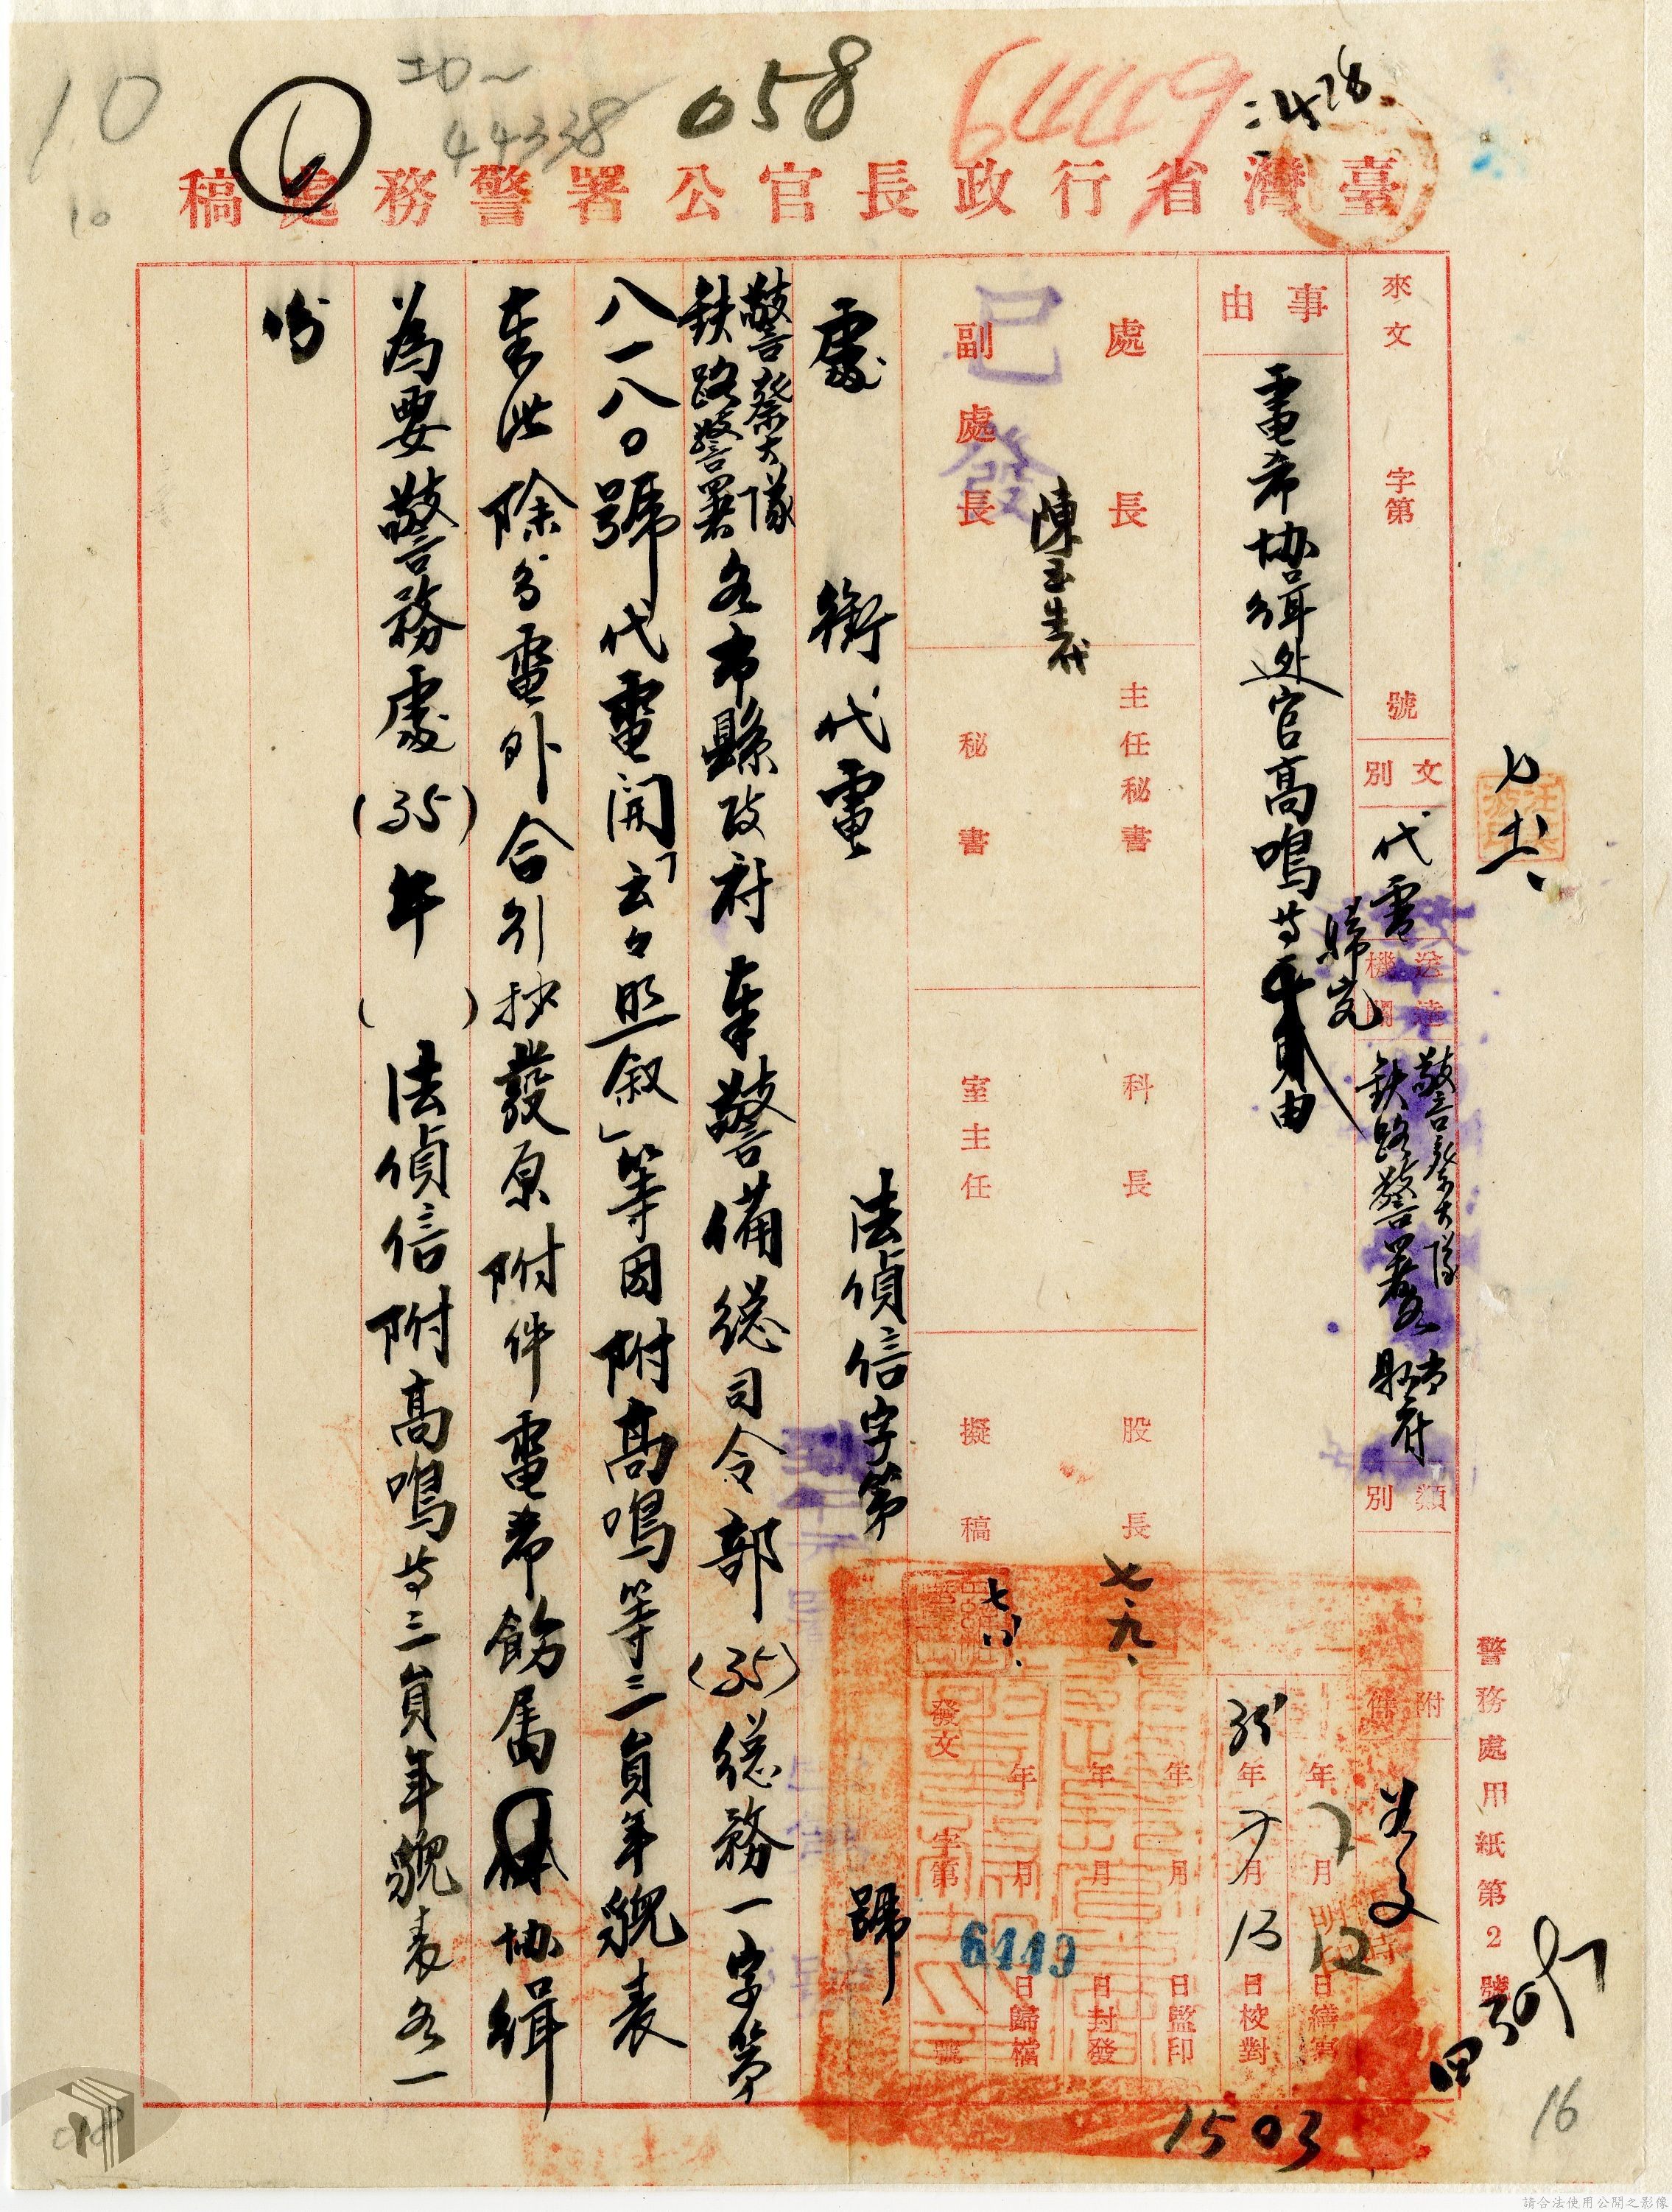 10
44338
058
6449
10
臺灣省行政長官公署警務處稿
來文 字第 號
文別 代電
送達機關 警察大隊 鉄路警署 各縣市府
類別
附件 並文
事由 電希協緝逃官高鳴等歸究由
處長
副處長
陳玉生代
已發
主任秘書
秘書
科長
室主任
股長 七.九.
擬稿
年7月12日繕寫
35年7月13日校對
年 月 日監印
年 月 日封發
年 月 日歸檔
發文 字第 號
6449
處銜代電 法偵信字第 號
警察大隊 鉄路警署 各市縣政府 奉警備總司令部(35)總務一字第
八一八〇號代電開「云々照叙」等因附高鳴等三員年貌表
奉此除分電外合引抄發原附件電希飭属協緝
為要警務處(35)年( )法偵信附高鳴等三員年貌表各一
份
警務處用紙第2號
1503
16
請合法使用公開之影像